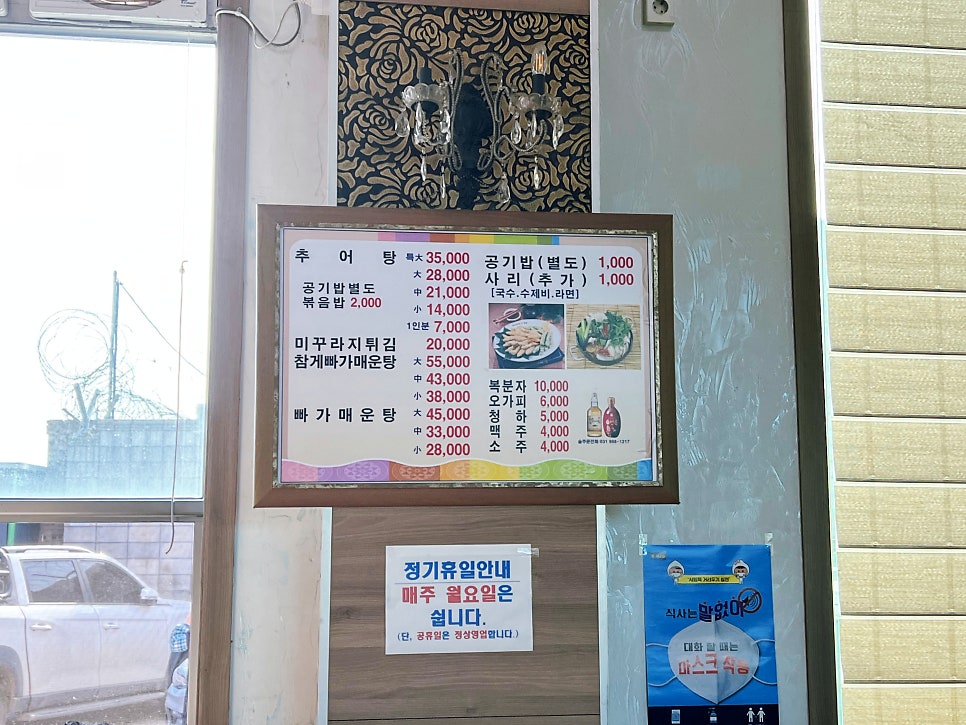 추 어 탕 特大 35,000
大 28,000
공기밥별도 中 21,000
볶음밥 2,000
小 14,000
1인분 7,000
미꾸라지튀김 20,000
참게빠가매운탕 大 55,000
中 43,000
小 38,000
빠가매운탕 大 45,000
中 33,000
小 28,000
공기밥(별도) 1,000
사리(추가) 1,000
[국수.수제비.라면]
복분자 10,000
오가피 6,000
청 하 5,000
맥 주 4,000
소 주 4,000
정기휴일안내
매주 월요일은
쉽니다.
(단, 공휴일은 정상영업합니다.)
식사는 말없이
대화 할 때는
마스크 착용